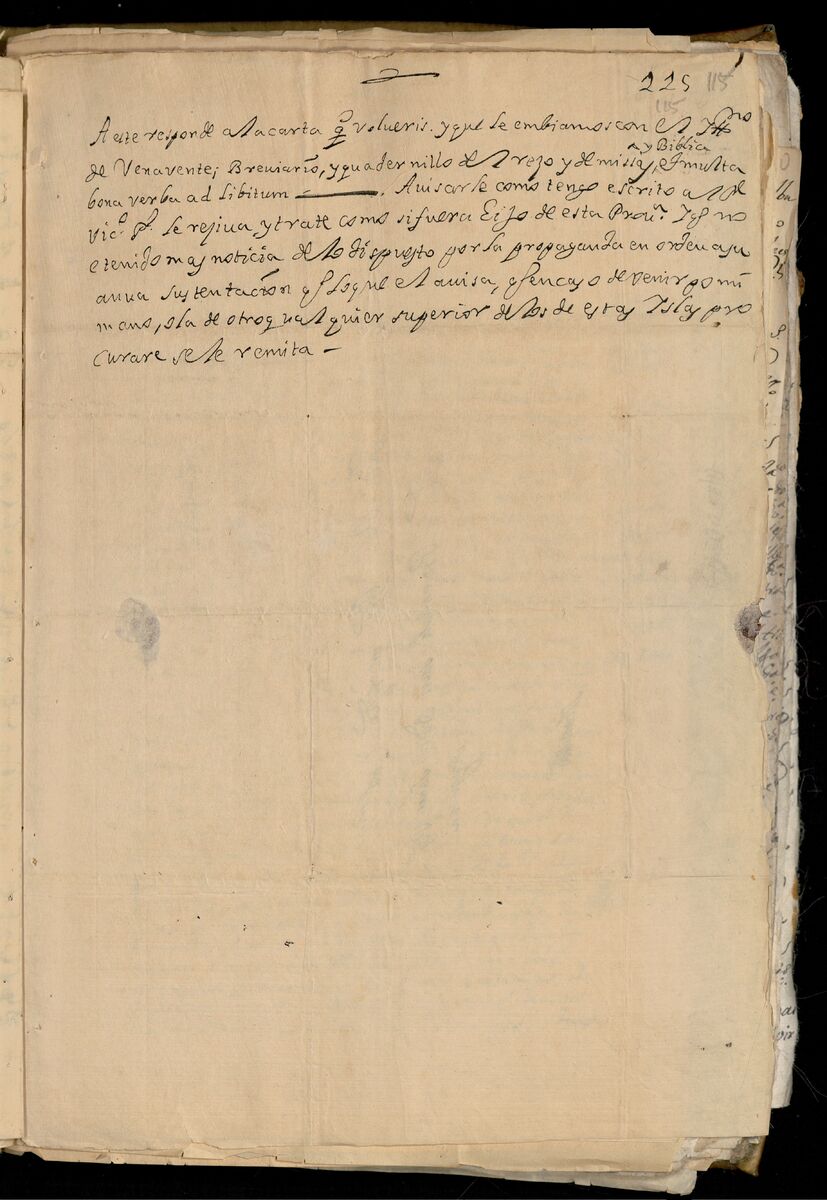 225 115
115
A este responde a la carta q̃ volueris. y que le embiamos con el Hno
ay Biblia
de Venavente; Breviario, y quadernillo del rezo y de missas, et multa
bona verba ad libitum ———. Auisarle como tengo escrito a el Pe
Vico. Pl. le resiua, y trate como si fuera Eijo de esta Prou.a Y q̃ no
e tenido mas noticia de lo dispuesto por la propaganda en orden a su
anua sustentacion q̃ lo que el auisa, q̃ en caso de venir po mi
mano, o la de otro qualquier superior de los de estas Yslas pro
curare se le remita —